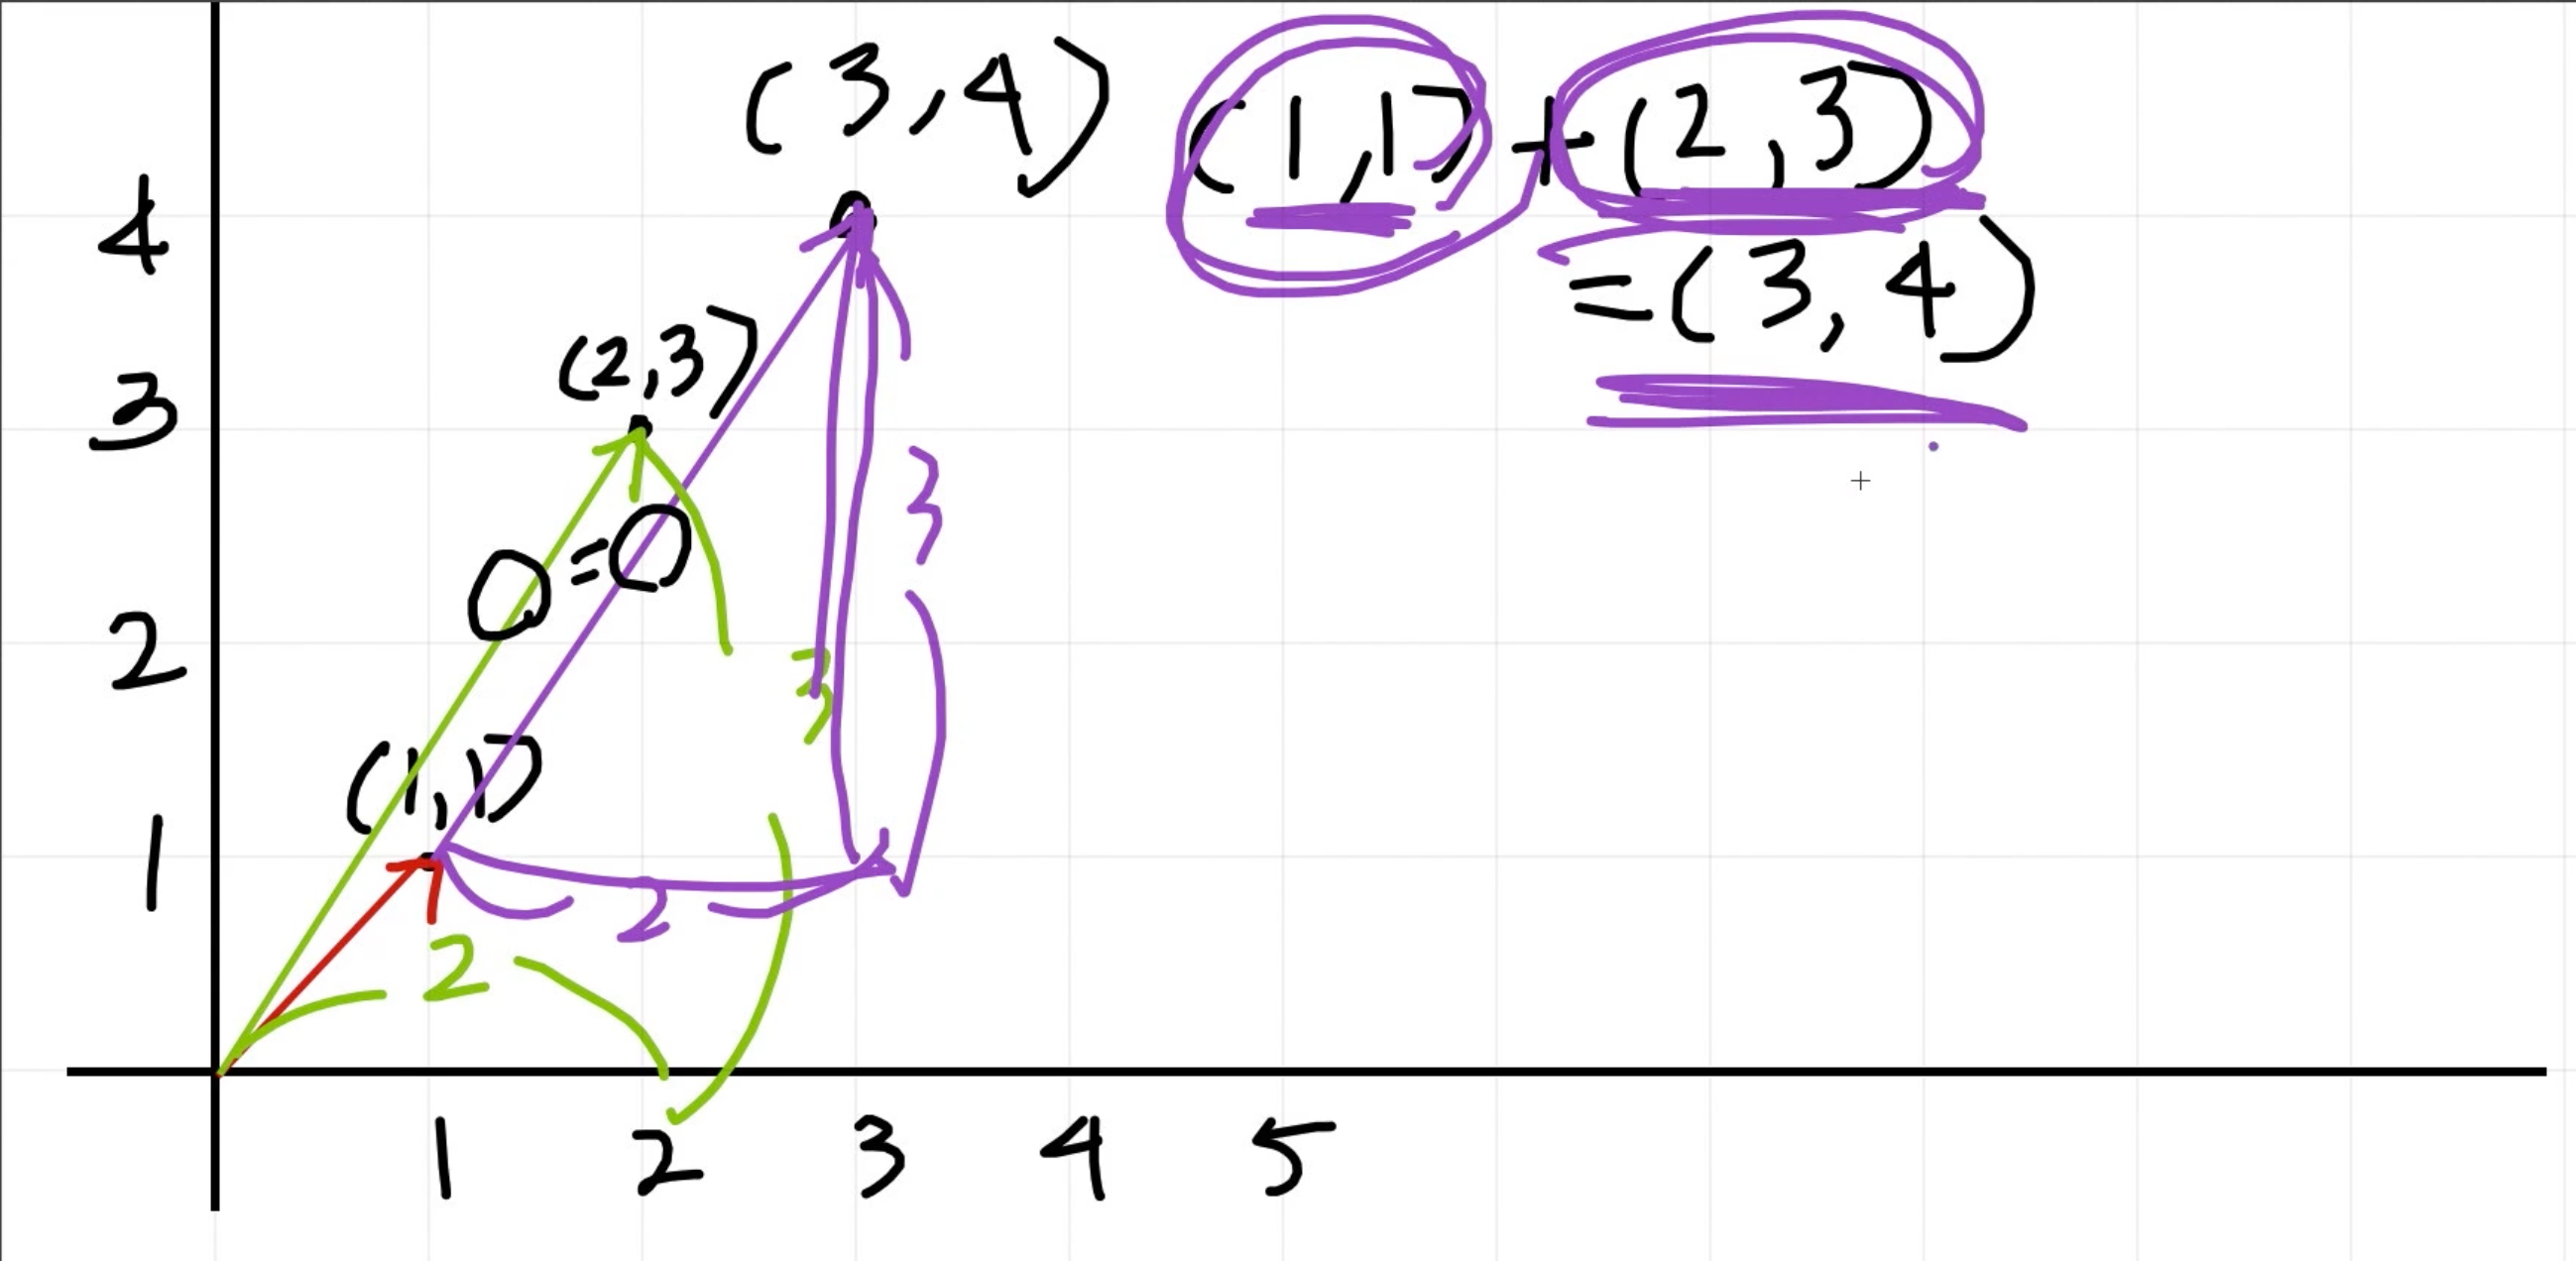 (3,4)
(1,1)+(2,3)
=(3,4)
4
(2,3)
3
3
0=0
2
3
(1,1)
1
2
2
1 2 3 4 5